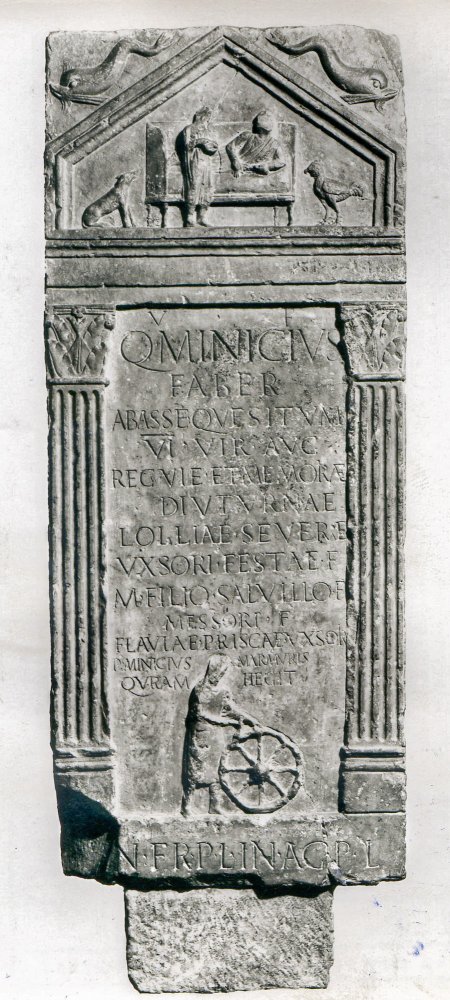 V F
Q MINICIVS
FABER
AB ASSE QVESITVM
VI VIR AVG
REGVIE ET MEMORAE
DIVTVRNAE
LOLLIAE SEVERAE
VXSORI FESTAE F
M FILIO SALVILLO F
MESSORI F
FLAVIAE PRISCAE VXSORI
P MINICIVS MARMVRIS
QVRAM HEGIT
IN FR P L IN AG P L